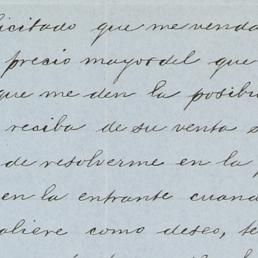 licitado que me venda
precio mayor del que
que me den la posibi
reciba de su venta s
de resolverme en la p
en la entrante cuand
aliere como deseo, te